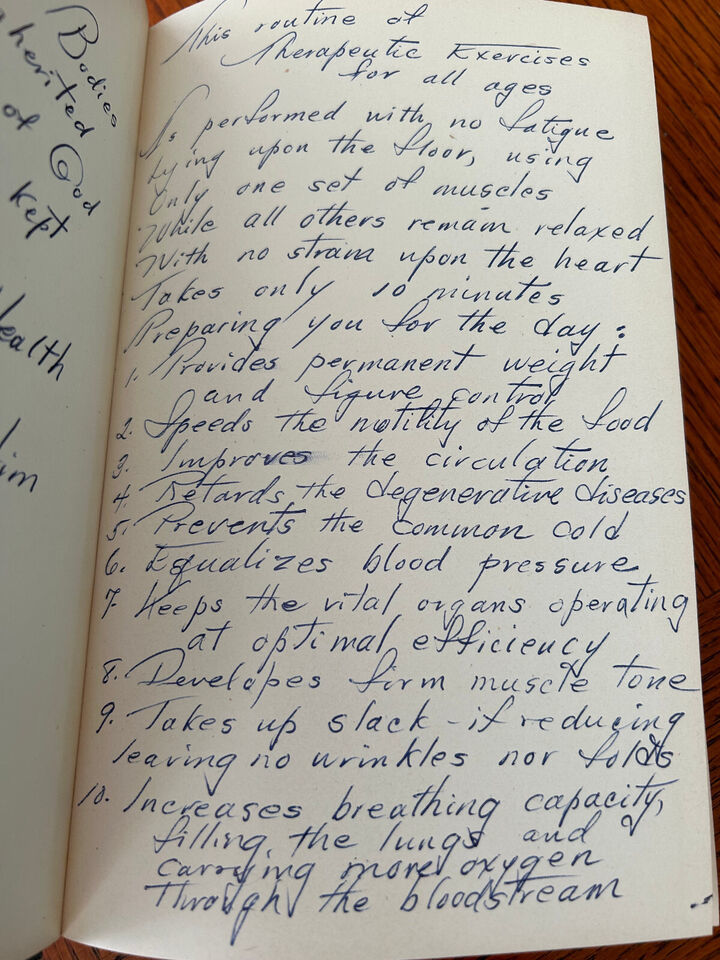 Bodies
herited
of God
kept
ealth
im
This routine of
Therapeutic Exercises
for all ages
Is performed with no fatigue
Lying upon the floor, using
Only one set of muscles
While all others remain relaxed
With no strain upon the heart
Takes only 10 minutes
Preparing you for the day:
1. Provides permanent weight
and figure control
2. Speeds the motility of the food
3. Improves the circulation
4. Retards the degenerative diseases
5. Prevents the common cold
6. Equalizes blood pressure
7. Keeps the vital organs operating
at optimal efficiency
8. Developes firm muscle tone
9. Takes up slack - if reducing
leaving no wrinkles nor folds
10. Increases breathing capacity,
filling the lungs and
carrying more oxygen
through the bloodstream